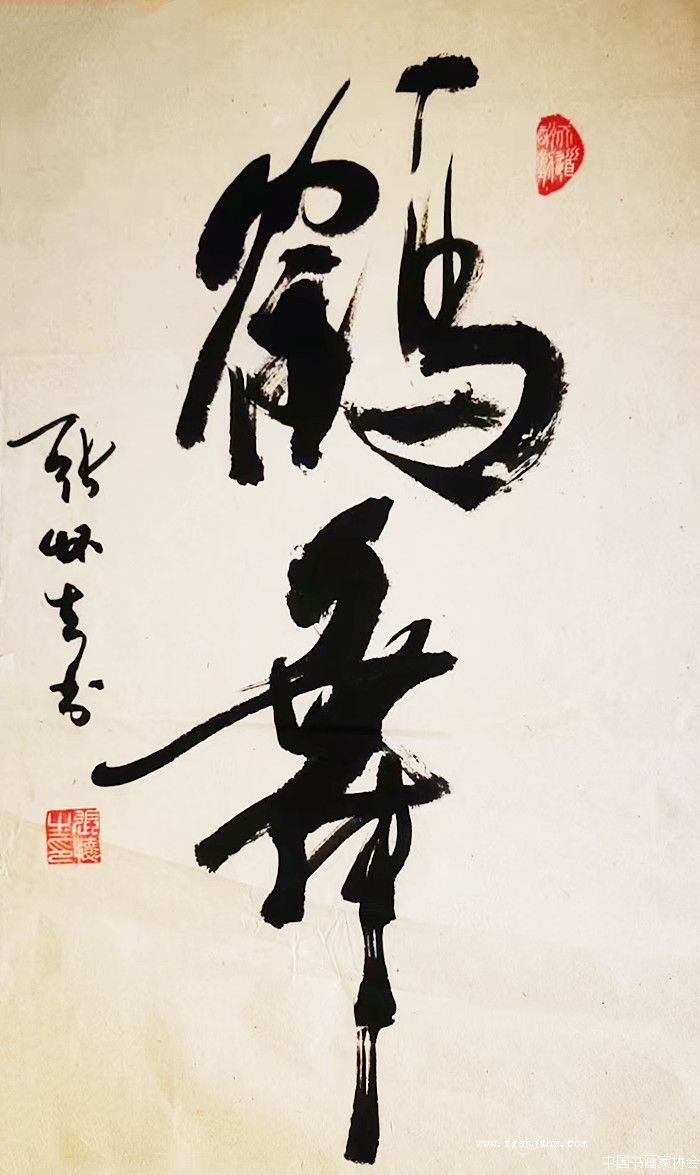 天道酬勤
鹤舞
张怀书
www.zgshjxhw.com
中国书画家协会